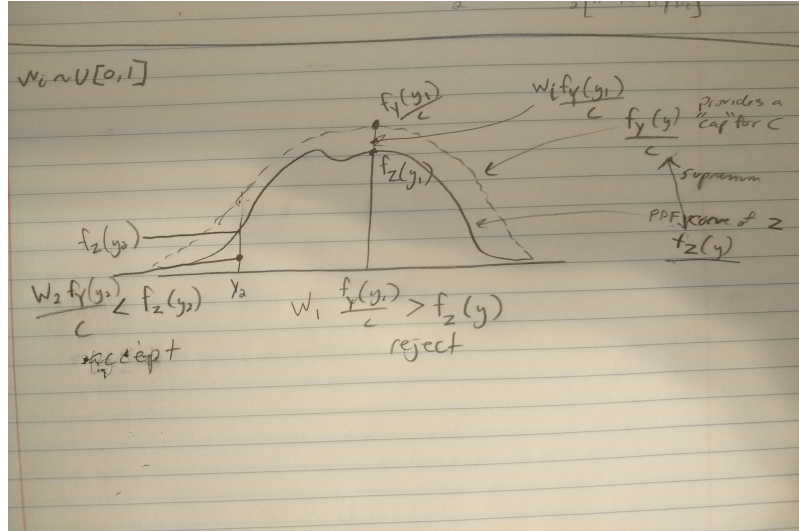 Wi ~ U[0,1]
fY(y1)/c
Wi fY(y1)/c
fY(y)/c
Provides a
"cap" for C
supremum
fZ(y1)
fZ(y2)
curve of Z
fZ(y)
y2
W2 fY(y2)/c < fZ(y2)
accept
W1 fY(y1)/c > fZ(y)
reject